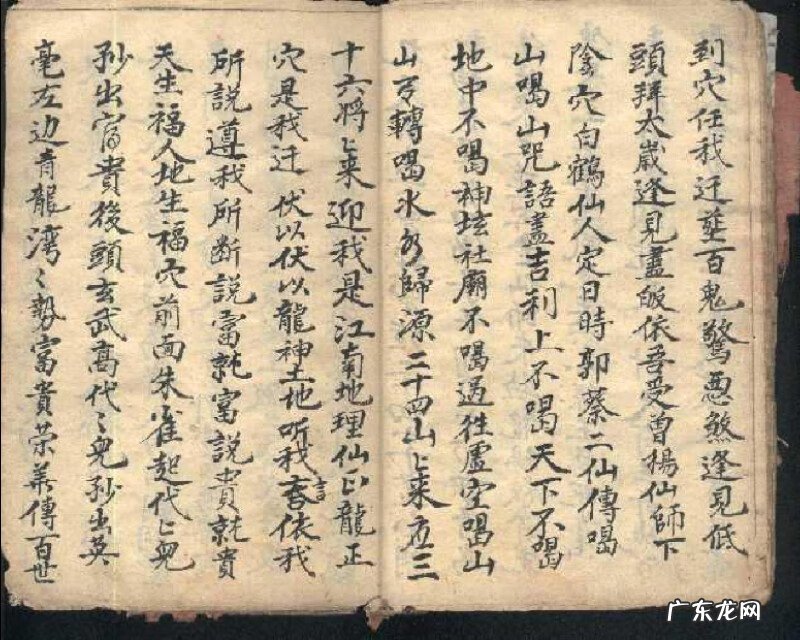 到穴任我迁塟百鬼驚悪煞逢見低
頭拜太歲逢見盡皈依吾受曾楊仙師下
陰穴白鶴仙人定日時郭蔡二仙傳喝
山喝山咒語盡吉利上不喝天下不喝
地中不喝神坛社廟不喝过往虛空喝山
山有轉喝水水歸源二十四山上来在三
十六将上来迎我是江南地理仙正龍正
穴是我迁伏以伏以龍神土地听我言依我
所説遵我所断説富就富説貴就貴
天生福人地生福穴前面朱雀起代上兒
孙出富貴後頭玄武高代〻兒孙出英
毫左边青龍湾〻勢富貴荣华傳百世
广东龙网